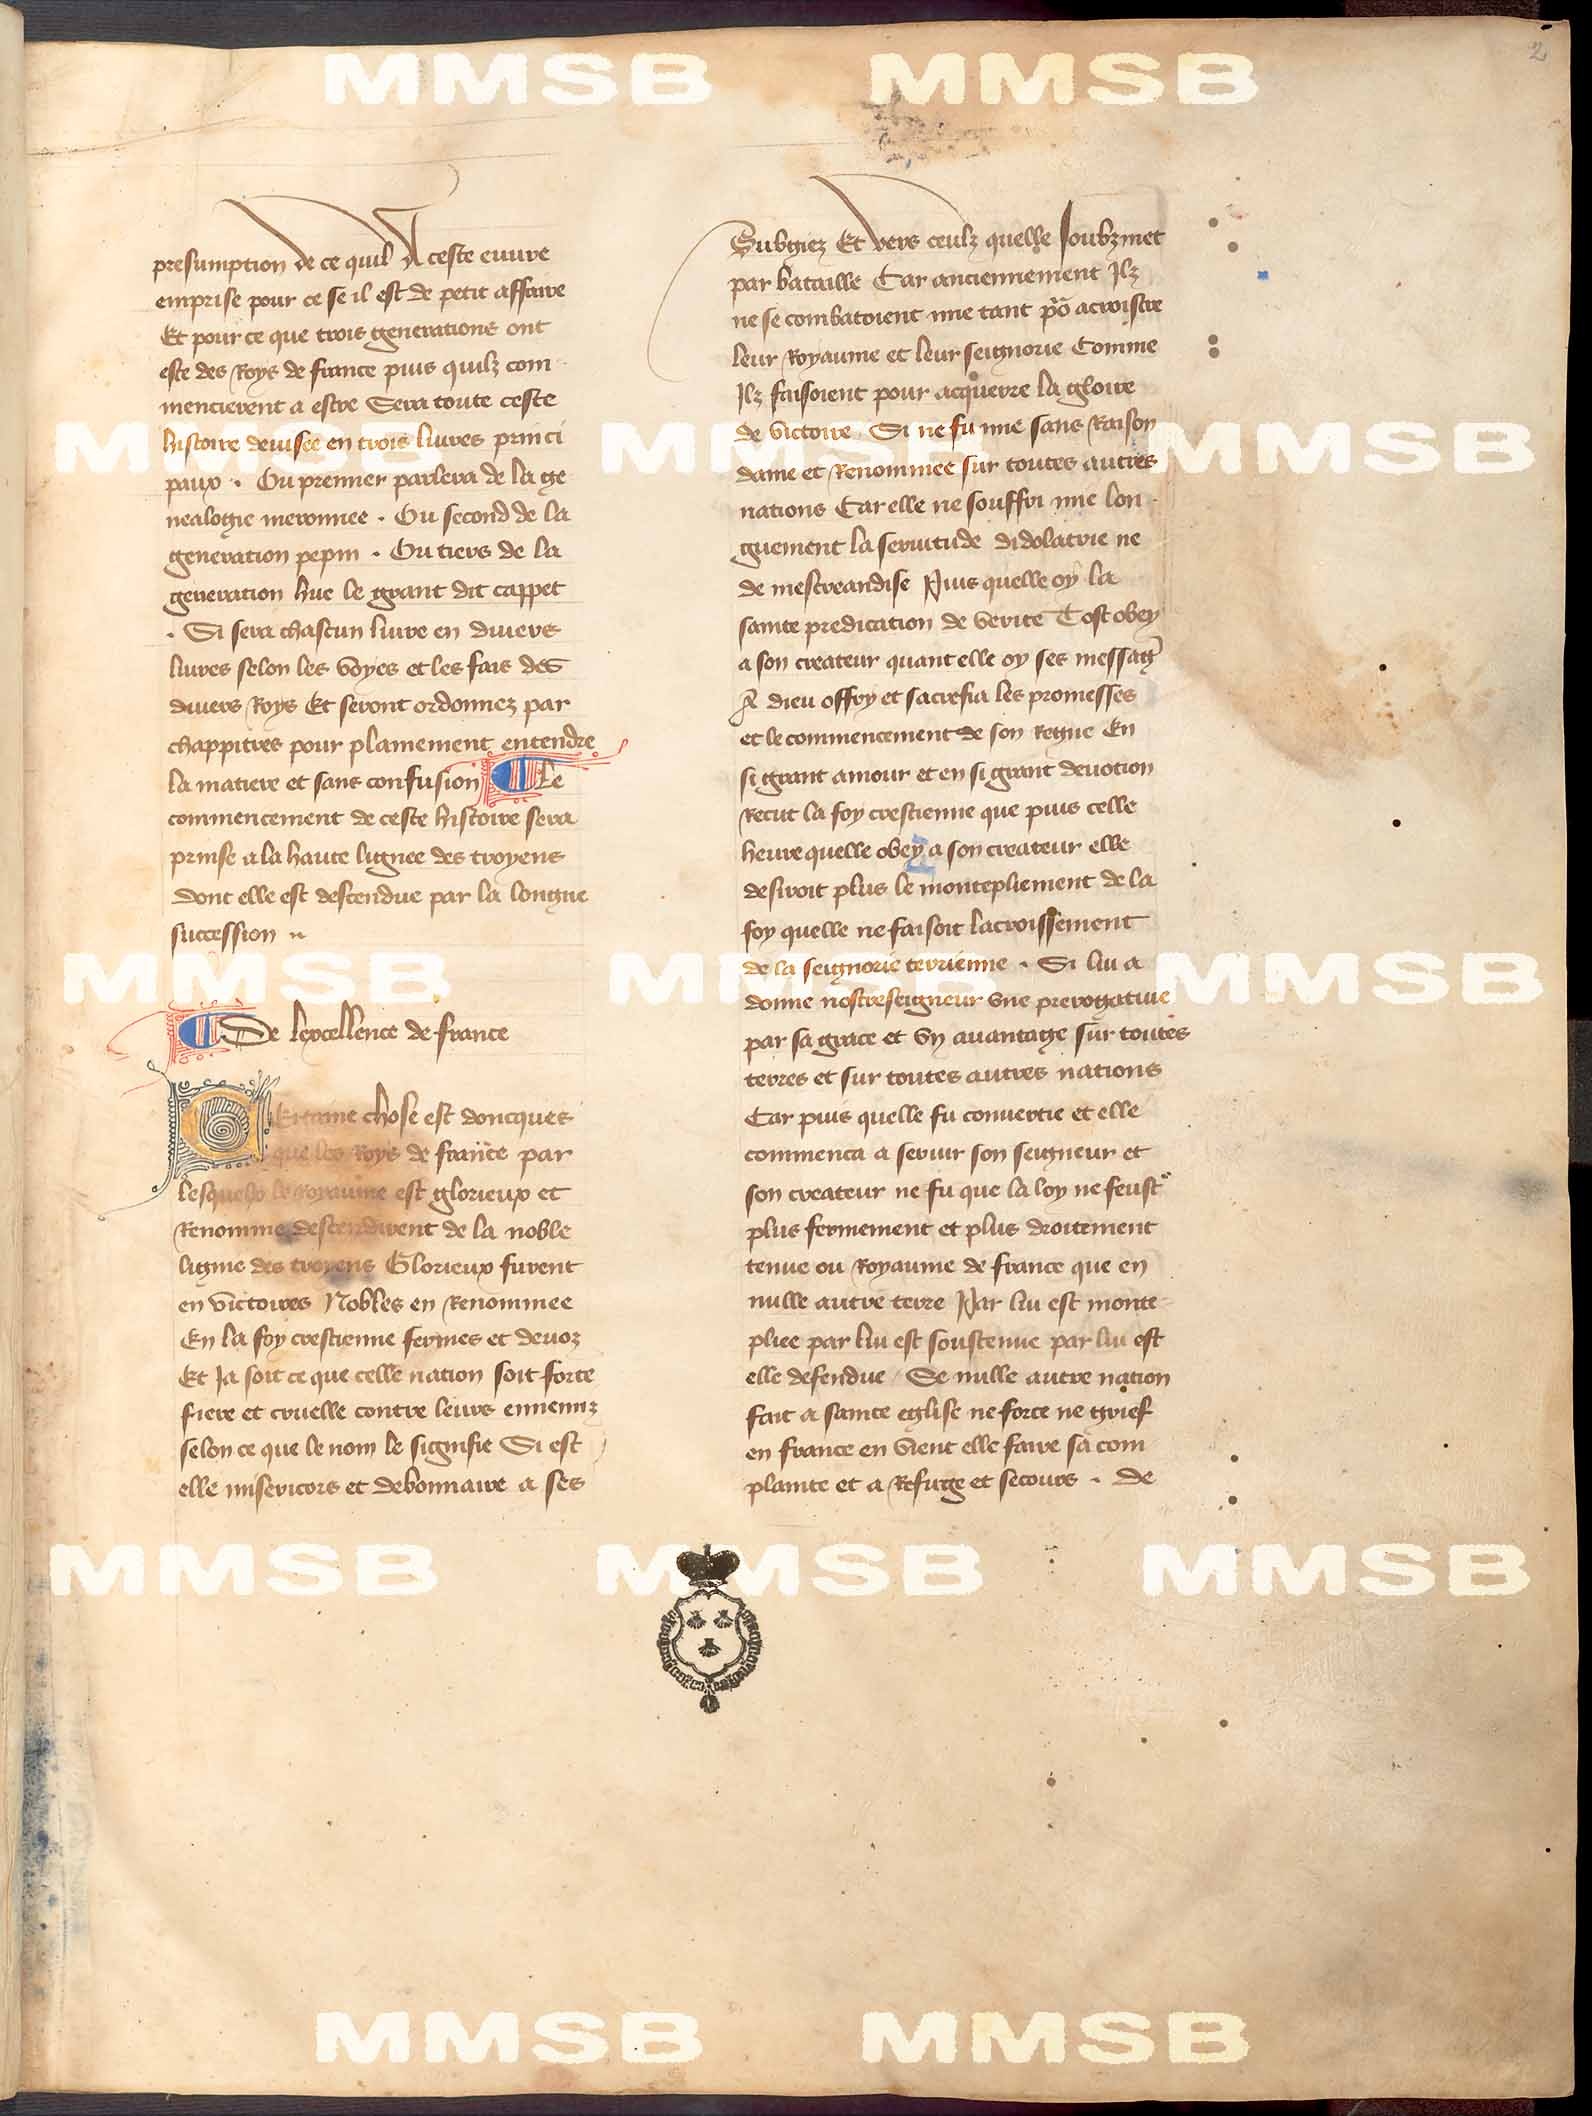 2
presumption de ce quil A ceste euure
emprise pour ce se il est de petit affaire
Et pour ce que trois generations ont
este des Roys de france puis quilz com
mencierent a estre Sera toute ceste
histoire deuisee en trois liures princi
paux . Ou premier parlera de la ge
nealogie meronnee . Ou second de la
generation pepin . Ou tiers de la
generation hue le grant dit cappet
. Si sera chascun liure en diuers
liures selon les voyes et les fais des
diuers Roys Et seront ordonnez par
chappitres pour plainement entendre
la matiere et sans confusion Le
commencement de ceste histoire sera
prinse a la haute lignee des troyens
dont elle est descendue par la longue
succession
De lexcellence de france
Certaine chose est doncques
que les Roys de france par
lesquelx le royaume est glorieux et
Renomme descendirent de la noble
lignie des troyens Glorieux furent
en victoires Nobles en Renommee
En la foy crestienne fermes et deuoz
Et Ja soit ce que celle nation soit forte
fiere et cruelle contre leurs ennemiz
selon ce que le nom le signifie Si est
elle misericors et debonnaire a ses
Subgiez Et vers ceulz quelle soubzmet
par bataille Car anciennement Ilz
ne se combatoient mie tant po acroistre
leur Royaume et leur seignorie Comme
Ilz faisoient pour acquerre la gloire
de victoire Si ne fu mie sans Raison
dame et Renommee sur toutes autres
nations Car elle ne souffri mie lon
guement la seruitude didolatrie ne
de mescreandise Puis quelle oy la
sainte predication de verite Tost obey
a son createur quant elle oy ses messag
A dieu offry et sacrefia les promesses
et le commencement de son Regne En
si grant amour et en si grant deuotion
Recut la foy crestienne que puis celle
heure quelle obey a son createur elle
desiroit plus le montepliement de la
foy quelle ne faisoit lacroissement
de la seignorie terrienne . Si lui a
donne nostreseigneur vne prerogatiue
par sa grace et vn auantage sur toutes
terres et sur toutes autres nations
Car puis quelle fu conuertie et elle
commenca a seruir son seigneur et
son createur ne fu que la loy ne feust
plus fermement et plus droitement
tenue ou Royaume de france que en
nulle autre terre Par lui est monte
pliee par lui est soustenue par lui est
elle defendue / Se nulle autre nation
fait a sainte eglise ne force ne grief
en france en vient elle faire sa com
plainte et a Refuge et secours . De